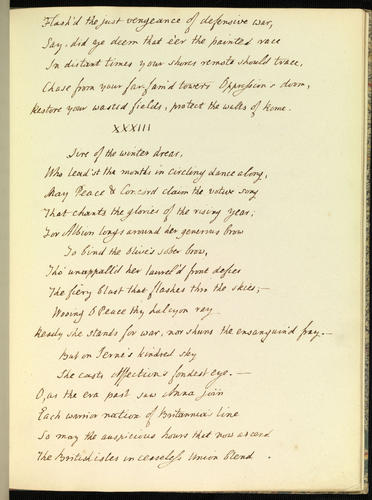 Flash'd the just vengeance of defensive war,
Say, did ye deem that e'er the painted race
In distant times your shores remote should trace,
Chase from your far-fam'd towers Oppression's doom,
Restore your wasted fields, protect the walls of Rome.
XXXIII
Sire of the winter drear,
Who lead'st the months in circling dance along,
May Peace & Concord claim the votive song
That chants the glories of the rising year;
For Albion longs around her generous brow
To bind the Olive's sober bow,
Tho' unappall'd her laurel'd front defies
The fiery blast that flashes thro the skies;—
Wooing O Peace thy halcyon ray
Ready she stands for war, nor shuns the ensanguin'd fray.—
But on Ierne's kindred sky
She casts Affection's fondest eye.—
O, as the era past saw Anna join
Each warrior nation of Britannia's line
So may the auspicious hours that now ascend
The British isles in ceaseless Union blend.